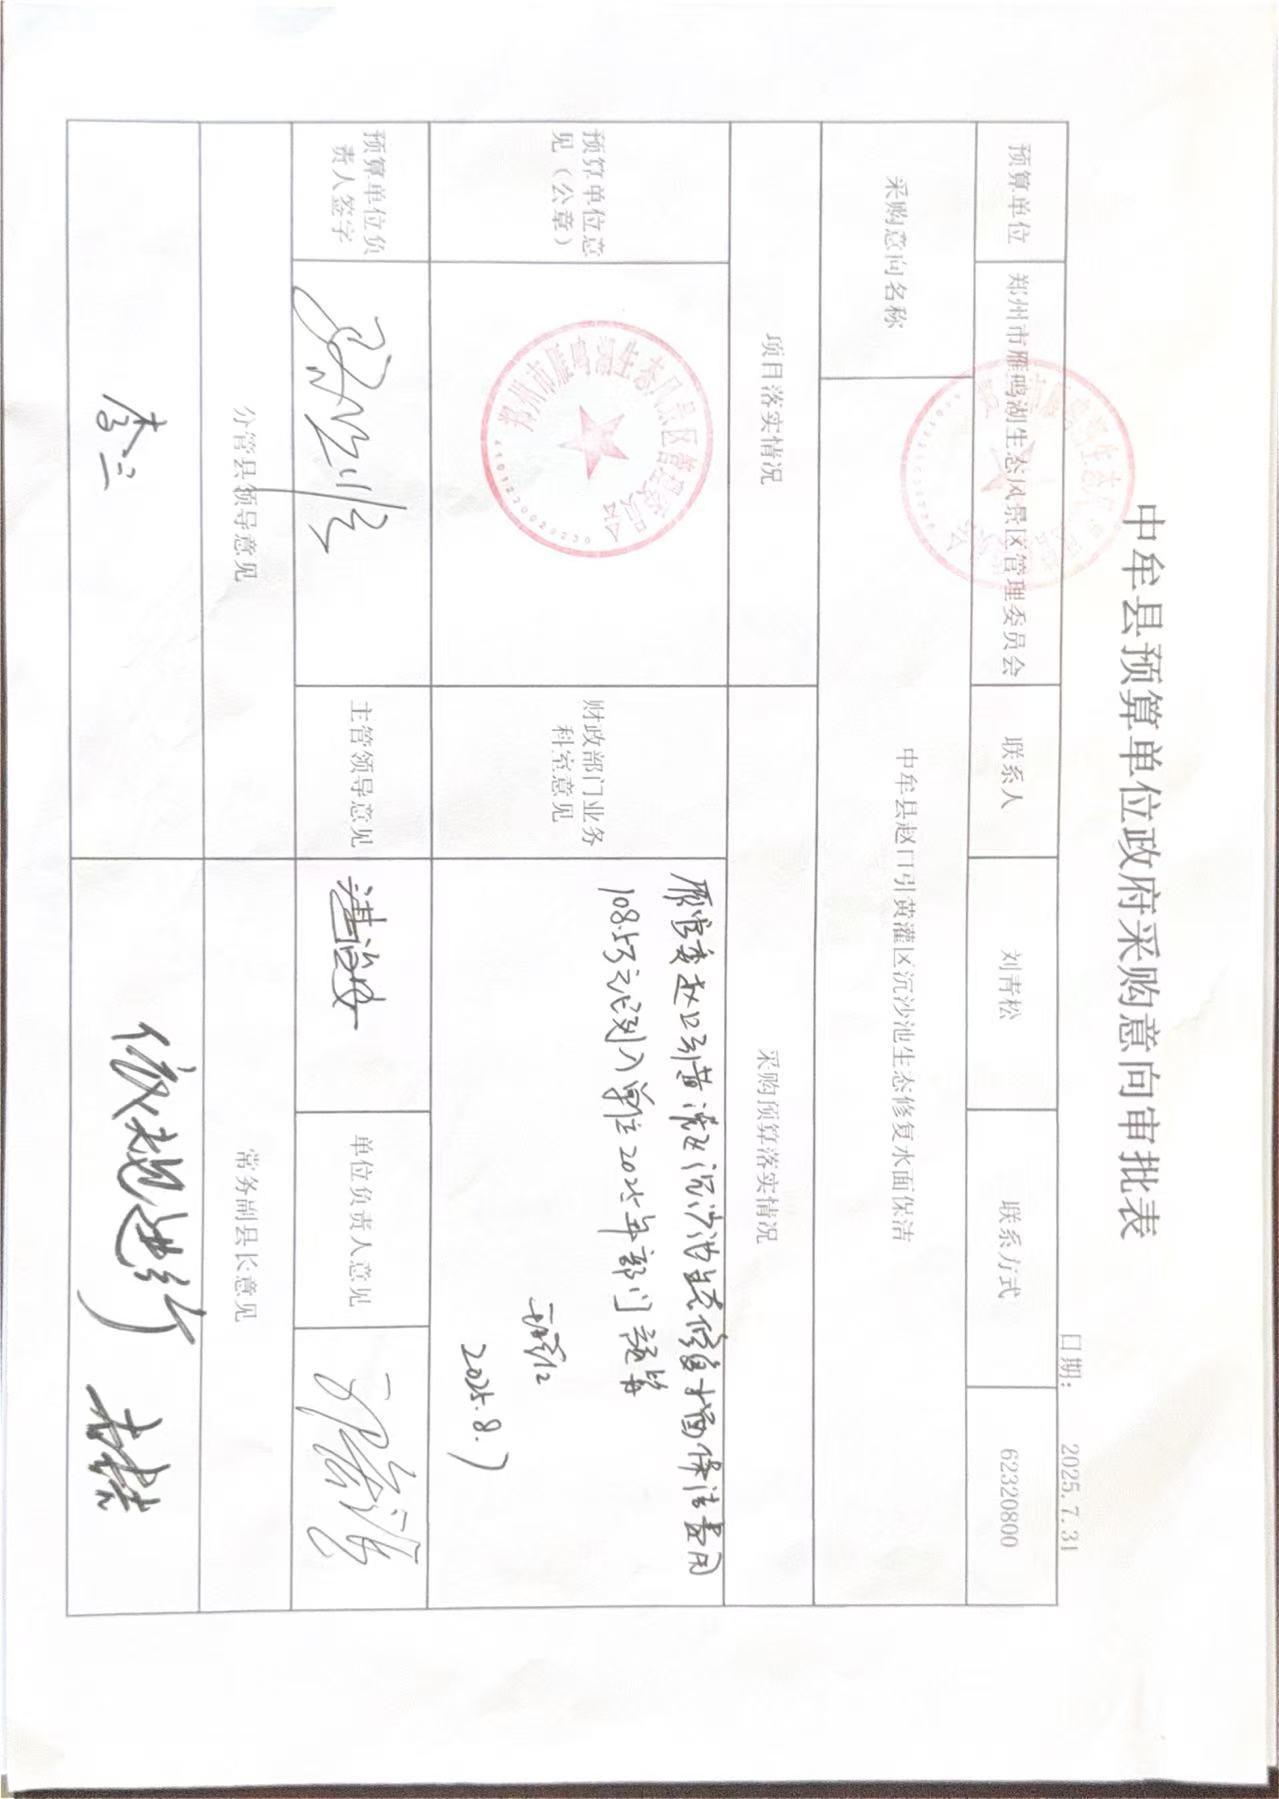 中牟县预算单位政府采购意向审批表
日期： 2025.7.31
预算单位
郑州市雁鸣湖生态风景区管理委员会
联系人
刘青松
联系方式
62320800
采购意向名称
中牟县赵口引黄灌区沉沙池生态修复水面保洁
项目落实情况
采购预算落实情况
预算单位意
见（公章）
郑州市雁鸣湖生态风景区管理委员会
财政部门业务
科室意见
赵口引黄灌区沉沙池生态修复水面保洁费用
108.5万元已列入单位2025年部门预算
2025.8.7
预算单位负
责人签字
主管领导意见
单位负责人意见
分管县领导意见
常务副县长意见